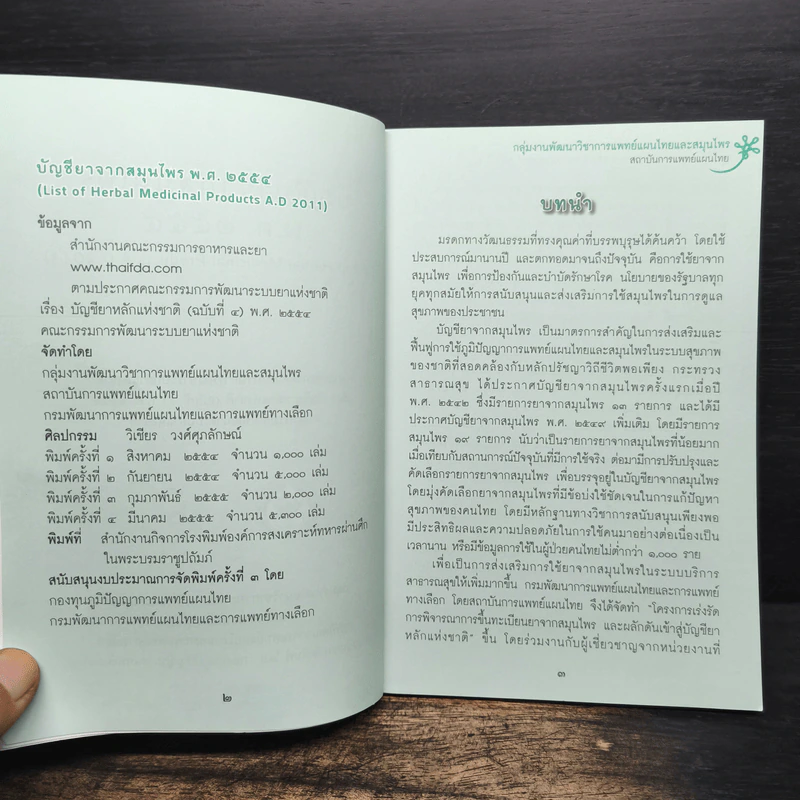 บัญชียาจากสมุนไพร พ.ศ. ๒๕๕๔
(List of Herbal Medicinal Products A.D 2011)
ข้อมูลจาก
สำนักงานคณะกรรมการอาหารและยา
www.thaifda.com
ตามประกาศคณะกรรมการพัฒนาระบบยาแห่งชาติ
เรื่อง บัญชียาหลักแห่งชาติ (ฉบับที่ ๔) พ.ศ. ๒๕๕๔
คณะกรรมการพัฒนาระบบยาแห่งชาติ
จัดทำโดย
กลุ่มงานพัฒนาวิชาการแพทย์แผนไทยและสมุนไพร
สถาบันการแพทย์แผนไทย
กรมพัฒนาการแพทย์แผนไทยและการแพทย์ทางเลือก
ศิลปกรรม วิเชียร วงศ์ศุภลักษณ์
พิมพ์ครั้งที่ ๑ สิงหาคม ๒๕๕๔ จำนวน ๑,๐๐๐ เล่ม
พิมพ์ครั้งที่ ๒ กันยายน ๒๕๕๔ จำนวน ๕,๐๐๐ เล่ม
พิมพ์ครั้งที่ ๓ กุมภาพันธ์ ๒๕๕๕ จำนวน ๒,๐๐๐ เล่ม
พิมพ์ครั้งที่ ๔ มีนาคม ๒๕๕๕ จำนวน ๕,๓๐๐ เล่ม
พิมพ์ที่ สำนักงานกิจการโรงพิมพ์องค์การสงเคราะห์ทหารผ่านศึก
ในพระบรมราชูปถัมภ์
สนับสนุนงบประมาณการจัดพิมพ์ครั้งที่ ๓ โดย
กองทุนภูมิปัญญาการแพทย์แผนไทย
กรมพัฒนาการแพทย์แผนไทยและการแพทย์ทางเลือก
๒
กลุ่มงานพัฒนาวิชาการแพทย์แผนไทยและสมุนไพร
สถาบันการแพทย์แผนไทย
บทนำ
มรดกทางวัฒนธรรมที่ทรงคุณค่าที่บรรพบุรุษได้ค้นคว้า โดยใช้
ประสบการณ์มานานปี และตกทอดมาจนถึงปัจจุบัน คือการใช้ยาจาก
สมุนไพร เพื่อการป้องกันและบำบัดรักษาโรค นโยบายของรัฐบาลทุก
ยุคทุกสมัยให้การสนับสนุนและส่งเสริมการใช้สมุนไพรในการดูแล
สุขภาพของประชาชน
บัญชียาจากสมุนไพร เป็นมาตรการสำคัญในการส่งเสริมและ
ฟื้นฟูการใช้ภูมิปัญญาการแพทย์แผนไทยและสมุนไพรในระบบสุขภาพ
ของชาติที่สอดคล้องกับหลักปรัชญาวิถีชีวิตพอเพียง กระทรวง
สาธารณสุข ได้ประกาศบัญชียาจากสมุนไพรครั้งแรกเมื่อปี
พ.ศ. ๒๕๔๒ ซึ่งมีรายการยาจากสมุนไพร ๑๓ รายการ และได้มี
ประกาศบัญชียาจากสมุนไพร พ.ศ. ๒๕๔๙ เพิ่มเติม โดยมีรายการ
สมุนไพร ๑๙ รายการ นับว่าเป็นรายการยาจากสมุนไพรที่น้อยมาก
เมื่อเทียบกับสถานการณ์ปัจจุบันที่มีการใช้จริง ต่อมามีการปรับปรุงและ
คัดเลือกรายการยาจากสมุนไพร เพื่อบรรจุอยู่ในบัญชียาจากสมุนไพร
โดยมุ่งคัดเลือกยาจากสมุนไพรที่มีข้อบ่งใช้ชัดเจนในการแก้ปัญหา
สุขภาพของคนไทย โดยมีหลักฐานทางวิชาการสนับสนุนเพียงพอ
มีประสิทธิผลและความปลอดภัยในการใช้คนมาอย่างต่อเนื่องเป็น
เวลานาน หรือมีข้อมูลการใช้ในผู้ป่วยคนไทยไม่ต่ำกว่า ๑,๐๐๐ ราย
เพื่อเป็นการส่งเสริมการใช้ยาจากสมุนไพรในระบบบริการ
สาธารณสุขให้เพิ่มมากขึ้น กรมพัฒนาการแพทย์แผนไทยและการแพทย์
ทางเลือก โดยสถาบันการแพทย์แผนไทย จึงได้จัดทำ “โครงการเร่งรัด
การพิจารณาการขึ้นทะเบียนยาจากสมุนไพร และผลักดันเข้าสู่บัญชียา
หลักแห่งชาติ” ขึ้น โดยร่วมงานกับผู้เชี่ยวชาญจากหน่วยงานที่
๓